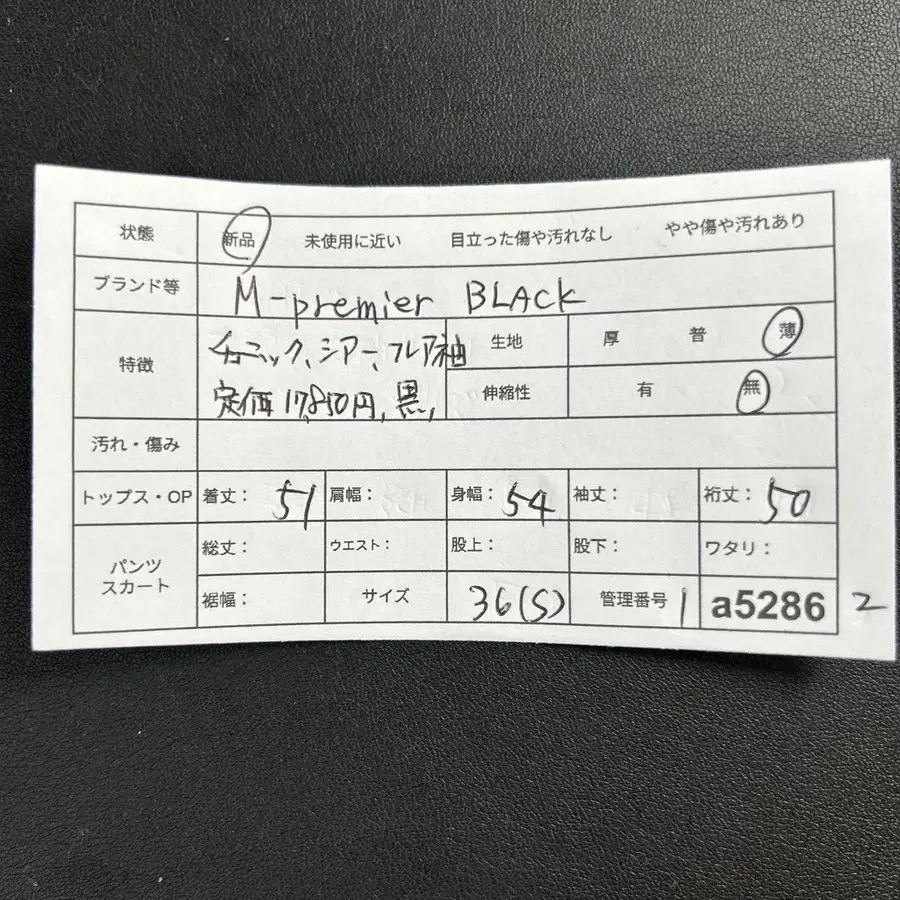 状態 新品 未使用に近い 目立った傷や汚れなし やや傷や汚れあり
ブランド等 M-premier BLACK
特徴 チュニック、シアー、フレア袖 生地 厚 普 薄
定価17,850円、黒、 伸縮性 有 無
汚れ・傷み
トップス・OP 着丈： 51 肩幅： 身幅： 54 袖丈： 裄丈： 50
パンツ スカート 総丈： ウエスト： 股上： 股下： ワタリ：
裾幅： サイズ 36(S) 管理番号 1 a5286 2